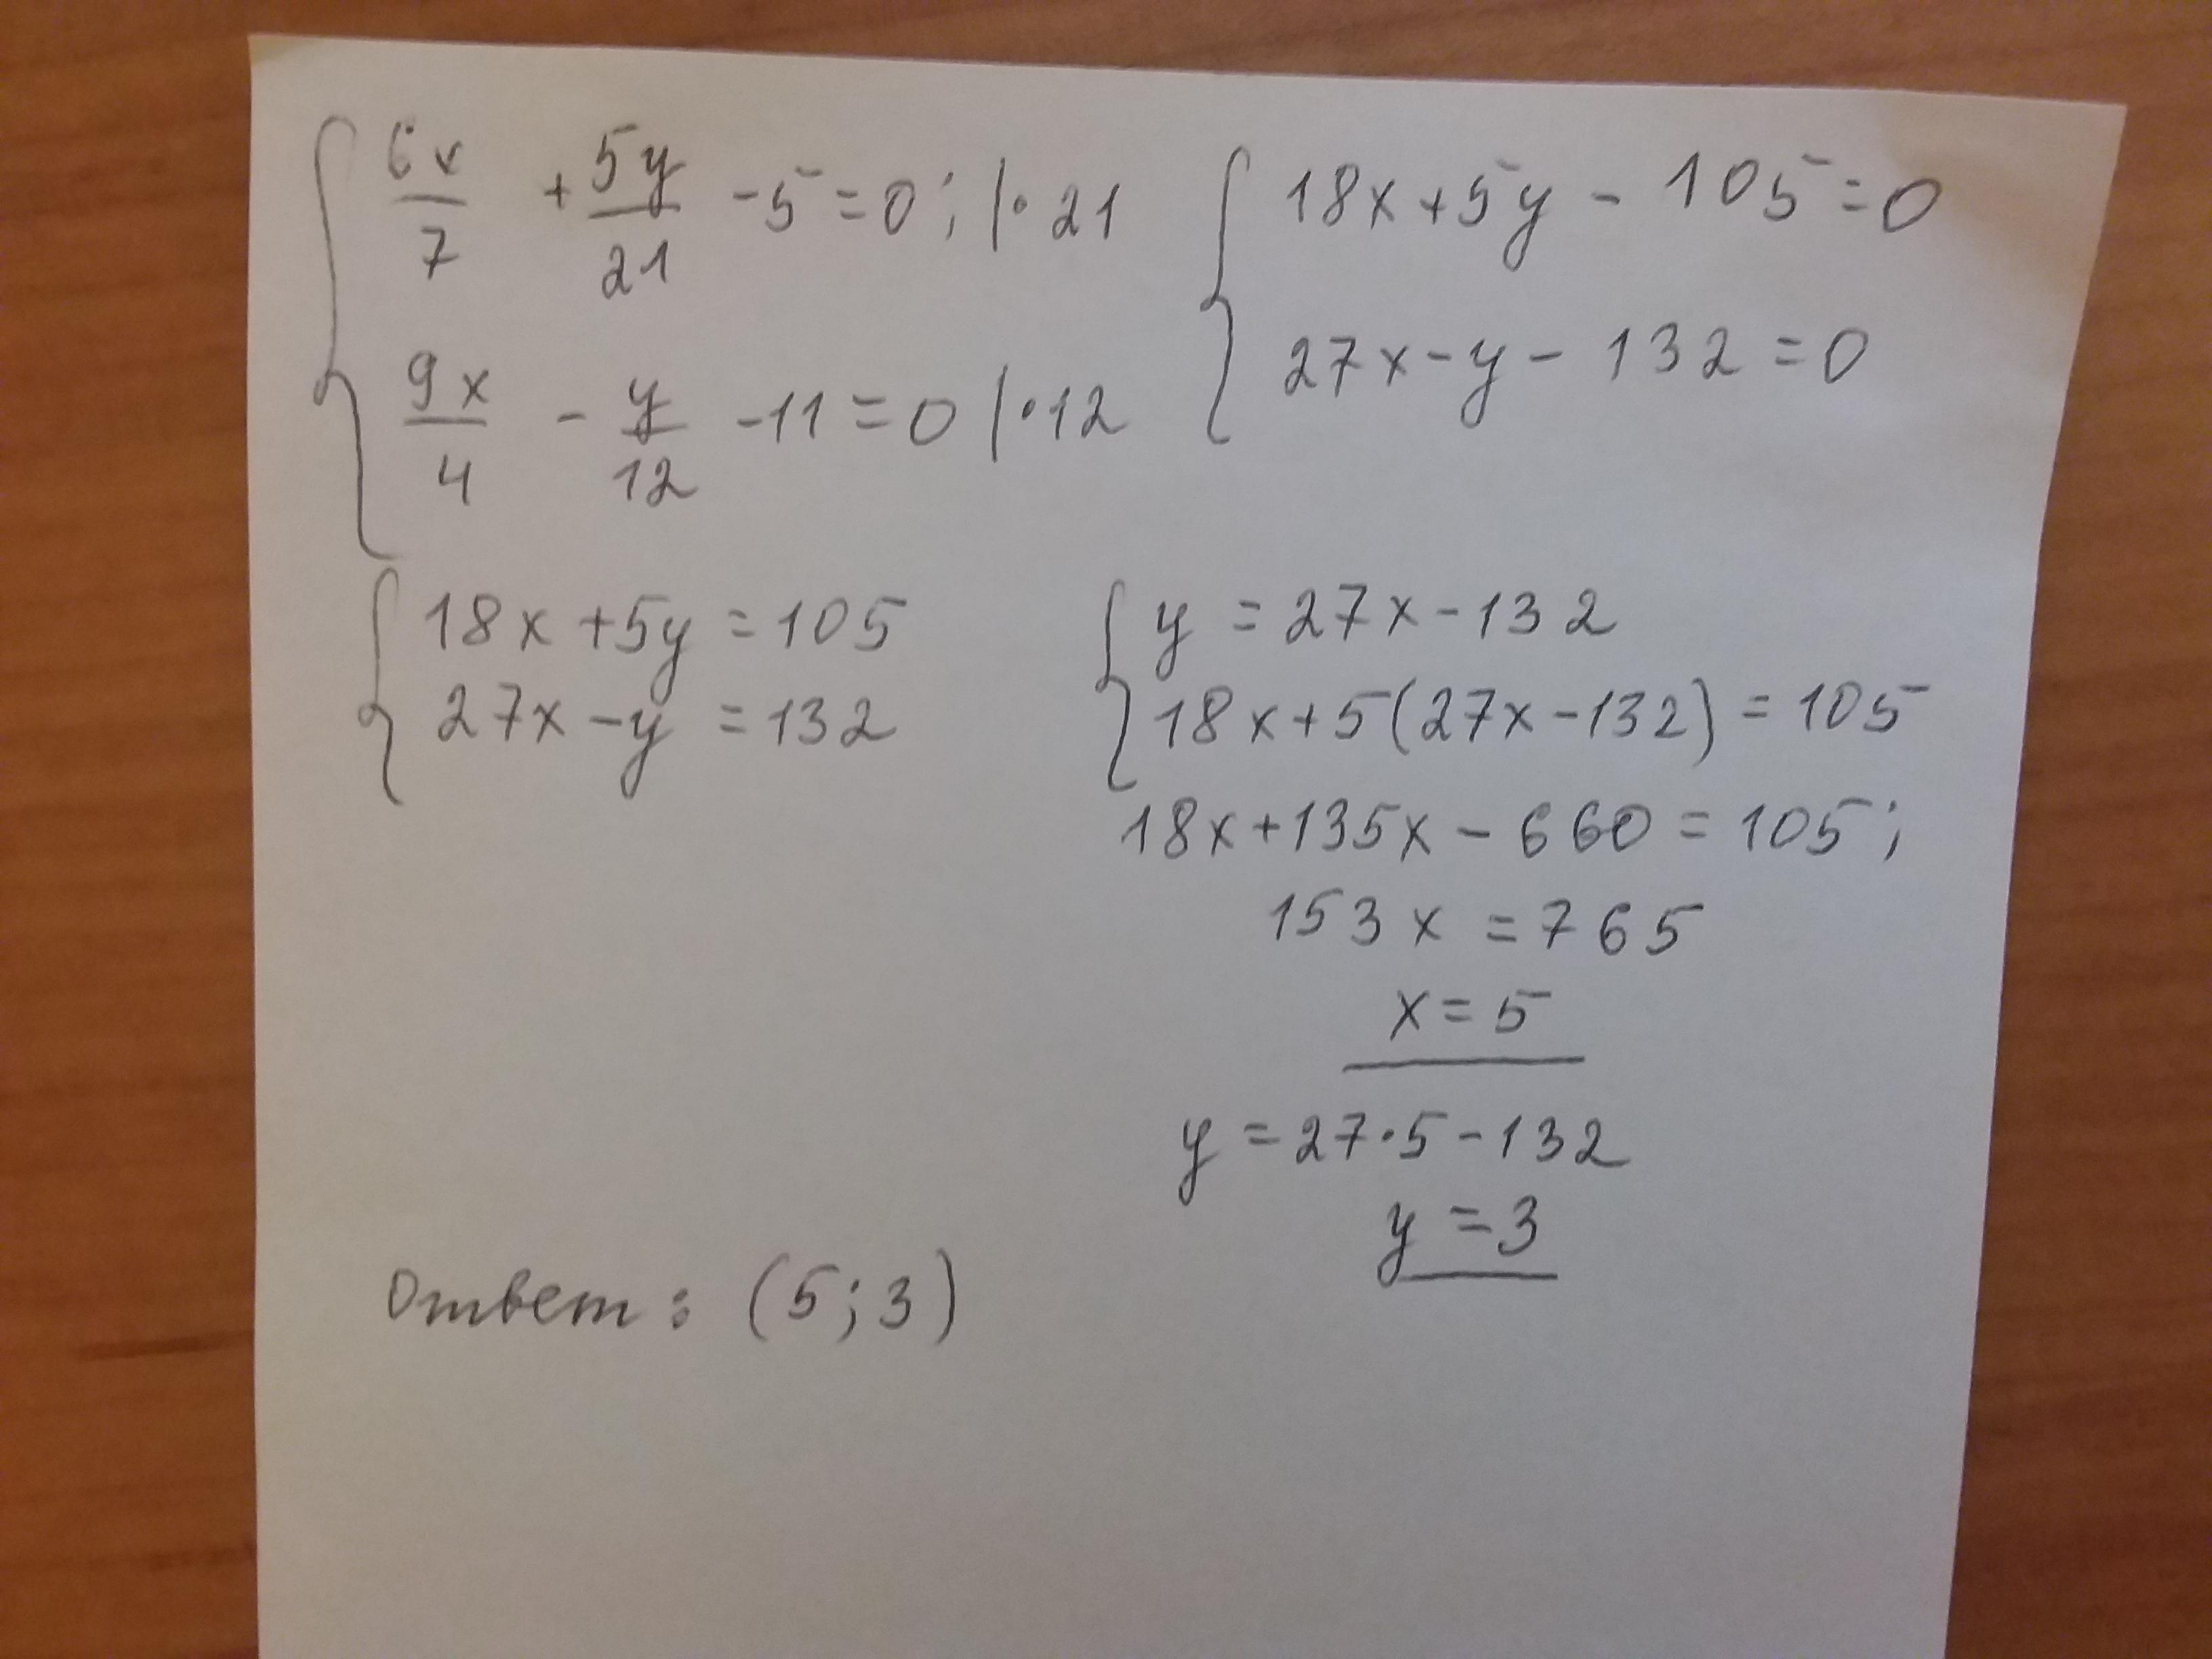 6x/7 + 5y/21 - 5 = 0; |·21
9x/4 - y/12 - 11 = 0 |·12
18x + 5y - 105 = 0
27x - y - 132 = 0
18x + 5y = 105
27x - y = 132
y = 27x - 132
18x + 5(27x - 132) = 105
18x + 135x - 660 = 105;
153x = 765
x = 5
y = 27·5 - 132
y = 3
Ответ: (5; 3)